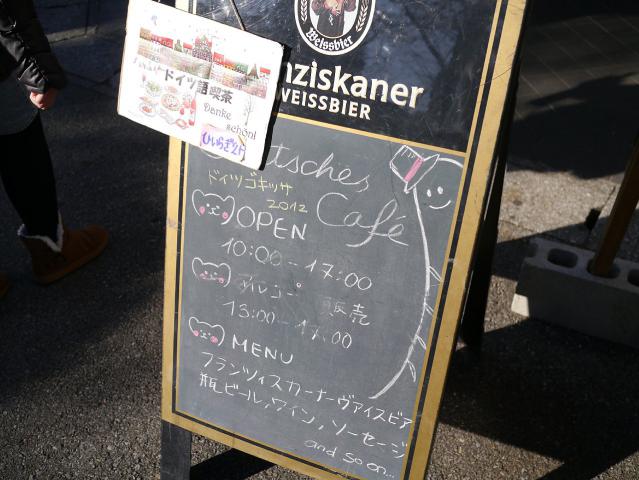 Weissbier
nziskaner
WEISSBIER
ドイツ語喫茶
Danke
schön!
ひいらぎ
tsches
Café
ドイツゴキッサ
2012
OPEN
10:00-17:00
販売
13:00-17:00
MENU
フランツィスカーナーヴァイスビア
瓶ビール,ワイン,ソーセージ
and so on...